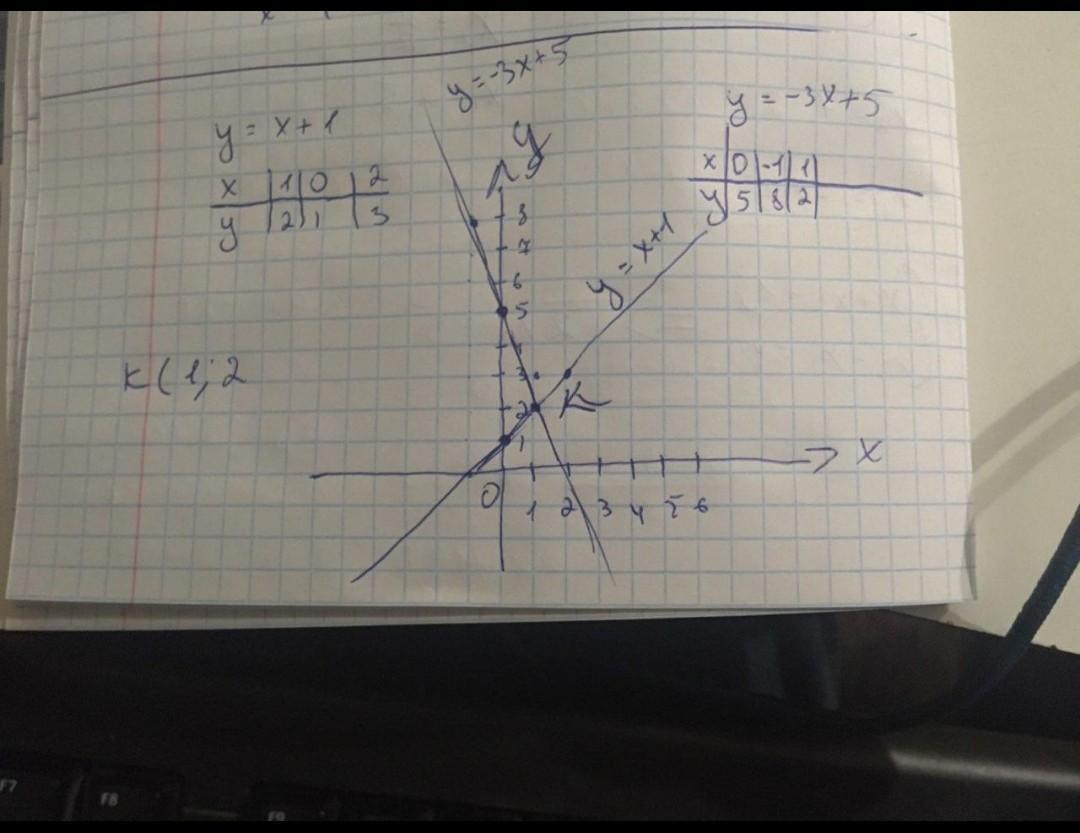 y = -3x+5
y = x+1
x | 1 | 0 | 2
y | 2 | 1 | 3
y = -3x+5
x | 0 | -1 | 1
y | 5 | 8 | 2
y
9
8
7
6
5
3
2
1
y = x+1
K
K(1;2
x
0 1 2 3 4 5 6
F7
F8
F9